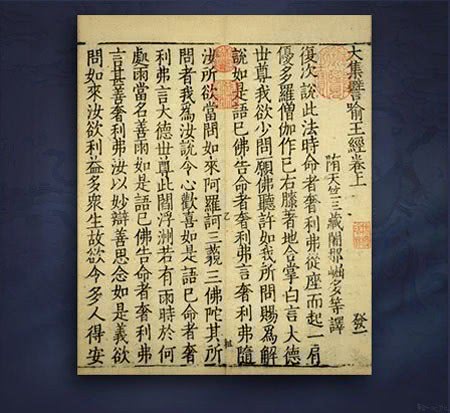 大集譬喻王經卷上
隋天竺三藏闍那崛多等譯 發一
復次說此法時命者奢利弗從座而起一肩
優多羅僧伽作已右膝著地合掌白言大德
世尊我欲少問願佛聽許如我所問賜為解
說如是語已佛告命者奢利弗言奢利弗隨
汝所欲當問如來阿羅訶三藐三佛陀其所
問者我為汝說令心歡喜如是語已命者奢
利弗言大德世尊此閻浮洲若有雨時於何
處雨當名善雨如是語已佛告命者奢利弗
言甚善奢利弗汝以妙辯善思念如是義欲
問如來汝欲利益多衆生故欲令多人得安